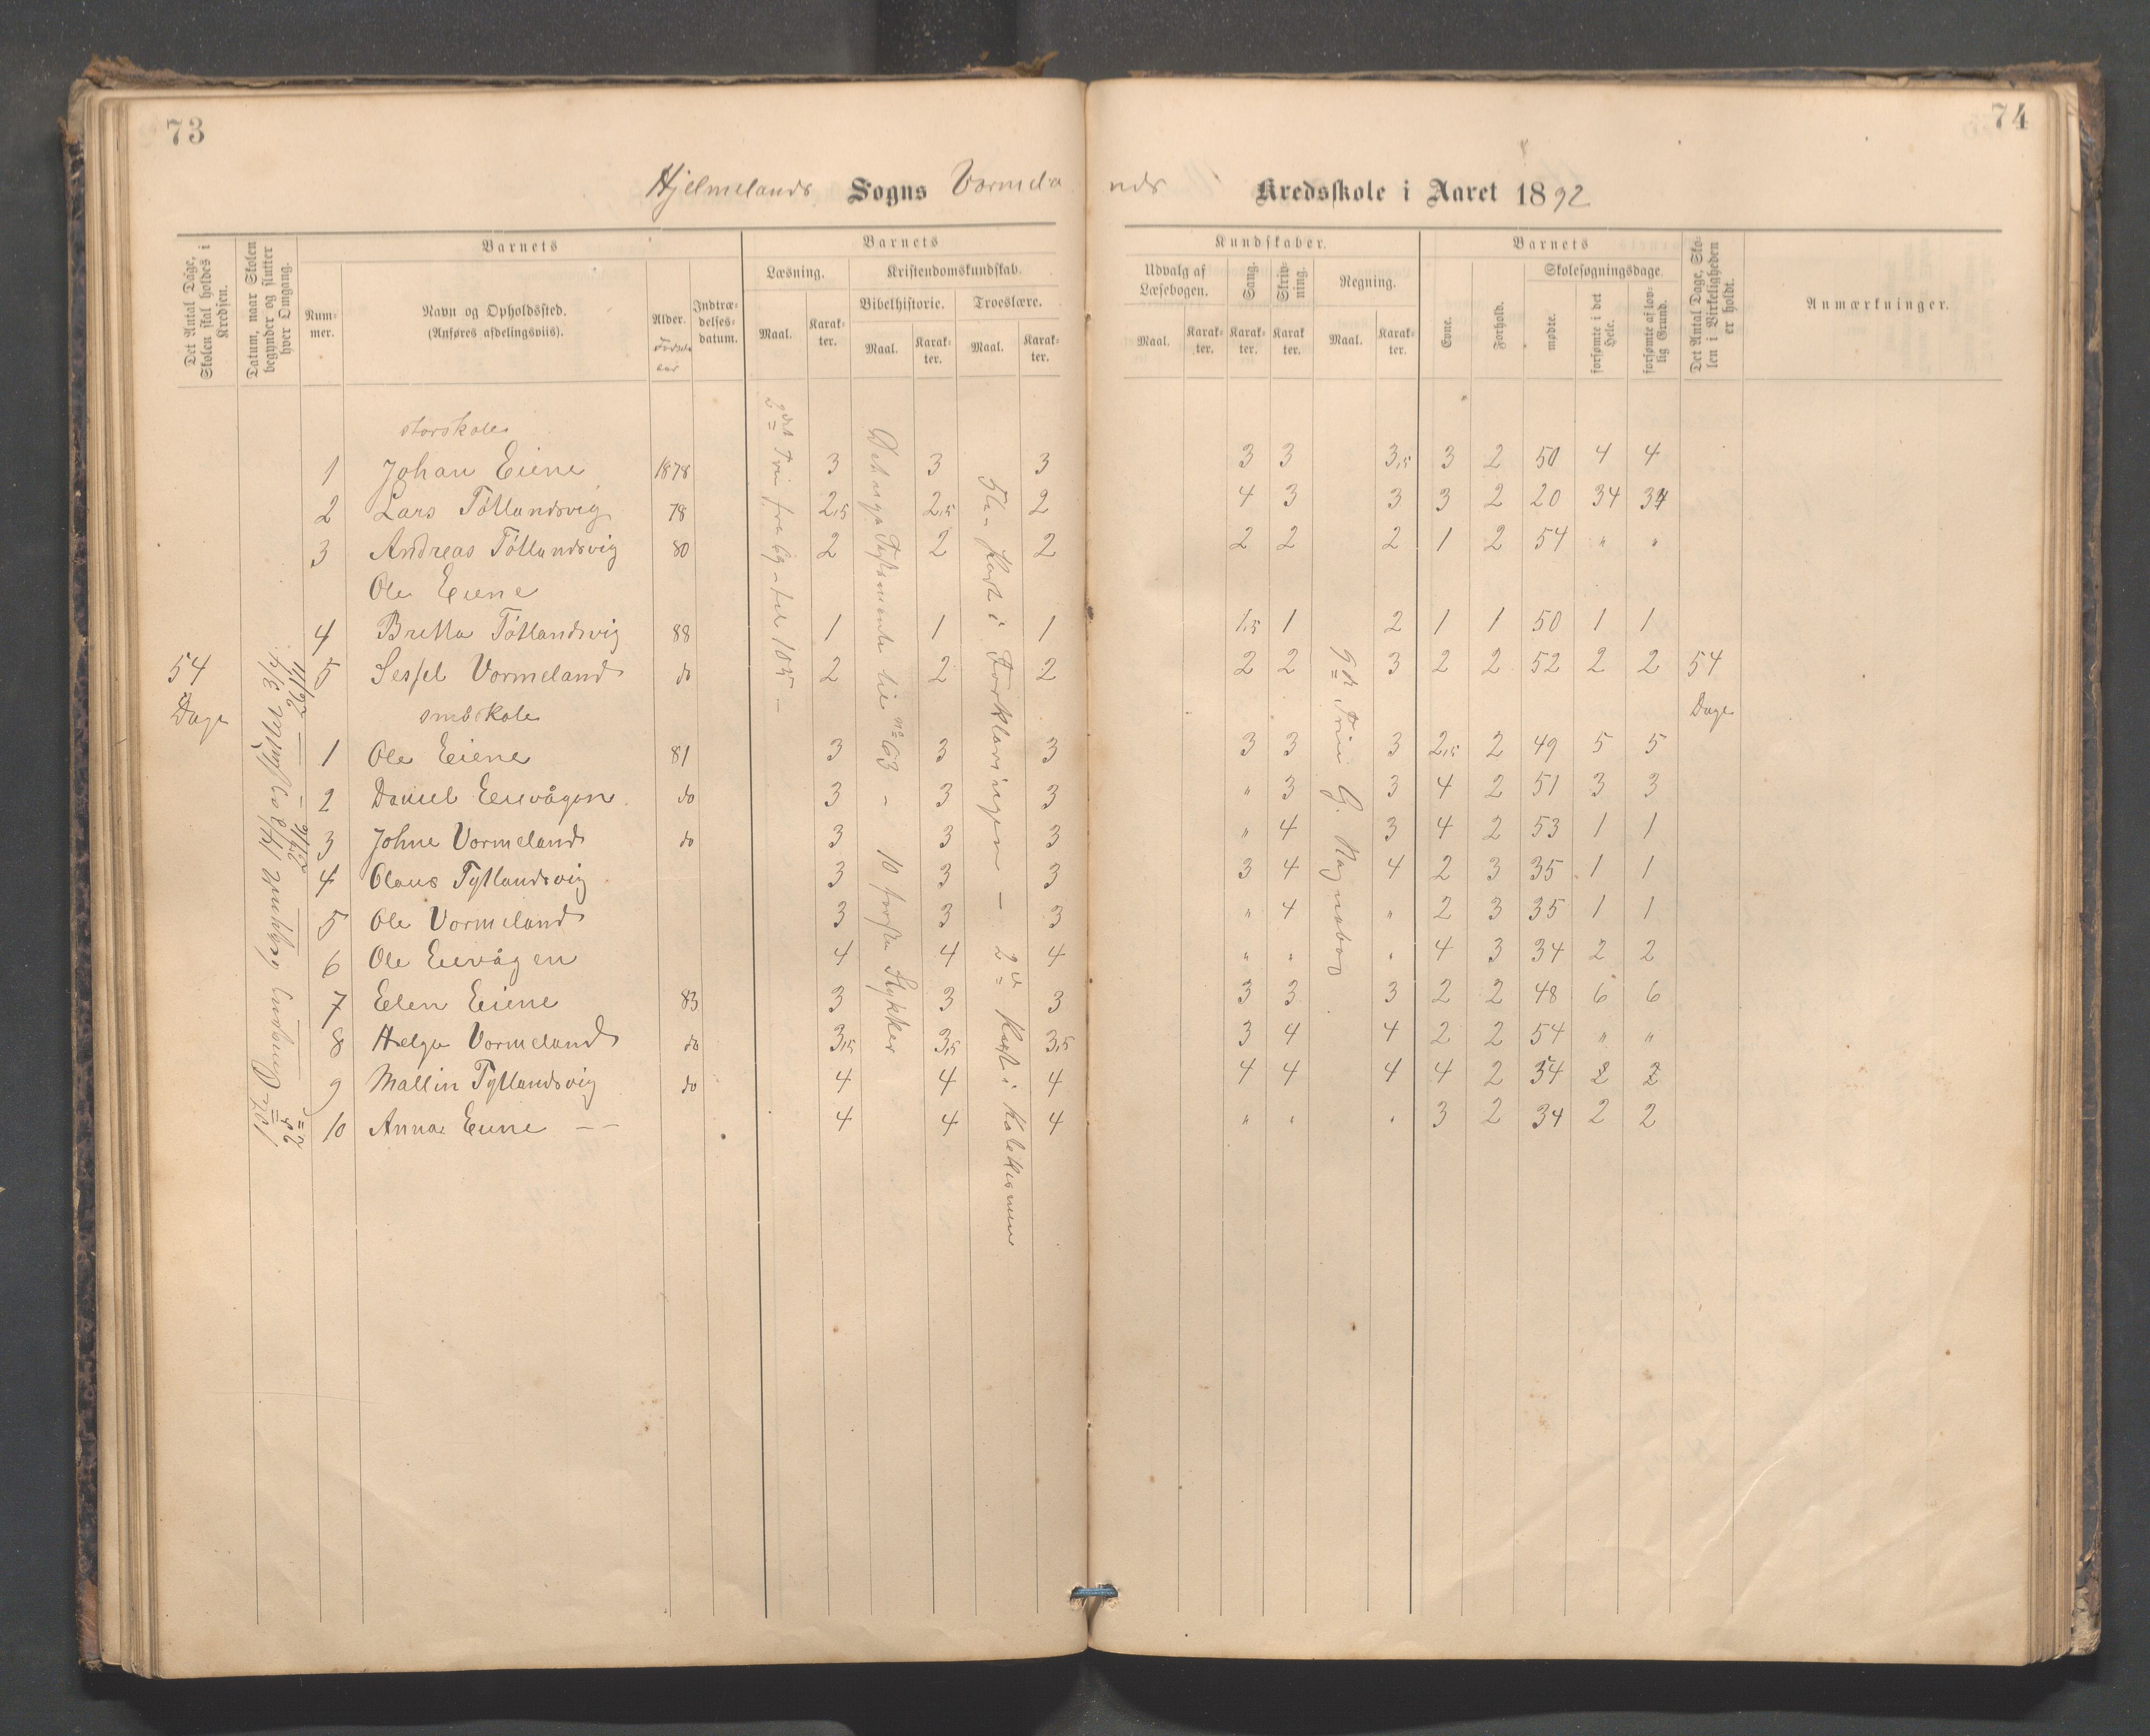 73
74
Hjelmelands Sogns Vormela
nds Kredsskole i Aaret 1892
Det Antal Dage, Skolen skal holdes i Kredsen.
Datum, naar Skolen begynder og slutter hver Omgang.
Barnets
Nummer.
Navn og Opholdssted.
(Anføres afdelingsviis).
Alder.
Fødselsaar
Indtrædelsesdatum.
Barnets
Læsning.
Maal.
Karakter.
Kristendomskundskab.
Bibelhistorie.
Maal.
Karakter.
Troeslære.
Maal.
Karakter.
Kundskaber.
Udvalg af Læsebogen.
Maal.
Karakter.
Sang.
Karakter.
Skrivning.
Karakter.
Regning.
Maal.
Karakter.
Barnets
Evne.
Forhold.
Skolesøgningsdage.
mødte.
forsømte i det Hele.
forsømte af lovlig Grund.
Det Antal Dage, Skolen i Virkeligheden er holdt.
Anmærkninger.
storskole
1 Johan Eiene 1878 3 3 3 3 3 3,5 3 2 50 4 4
2 Lars Tøtlandsvig 78 2,5 2,5 2 4 3 3 3 2 20 34 34
3 Andreas Tøtlandsvig 80 2 2 2 2 2 2 1 2 54 " "
Ole Eiene
4 Britta Tøtlandsvig 88 1 1 1 1,5 1 2 1 1 50 1 1
54 5 Sessel Vormeland do 2 2 2 2 2 3 2 2 52 2 2 54
Dage småskole Dage
1 Ole Eiene 81 3 3 3 3 3 3 2,5 2 49 5 5
2 Daniel Eievågen do 3 3 3 " 3 3 4 2 51 3 3
3 Johne Vormeland do 3 3 3 " 4 3 4 2 53 1 1
4 Olaus Tytlandsvig 3 3 3 3 4 4 2 3 35 1 1
5 Ole Vormeland 3 3 3 " 4 " 2 3 35 1 1
6 Ole Eievågen 4 4 4 " " " 4 3 34 2 2
7 Elen Eiene 83 3 3 3 3 3 3 2 2 48 6 6
8 Helga Vormeland do 3,5 3,5 3,5 3 4 4 2 2 54 " "
9 Mallin Tytlandsvig do 4 4 4 4 4 4 4 2 34 2 2
10 Anna Eiene — — 4 4 4 " " " 3 2 34 2 2
1ste Omgang begyndt 14/3 sluttet 3/4
2d 27/6 — 26/11
2det Trin fra 69 - til 105 -
Det nye Testamente til no 63 - 10 første Stykker
5te Part i Forklaringen — 2d Part i Katekismen
2det Trin G. Ragnabo